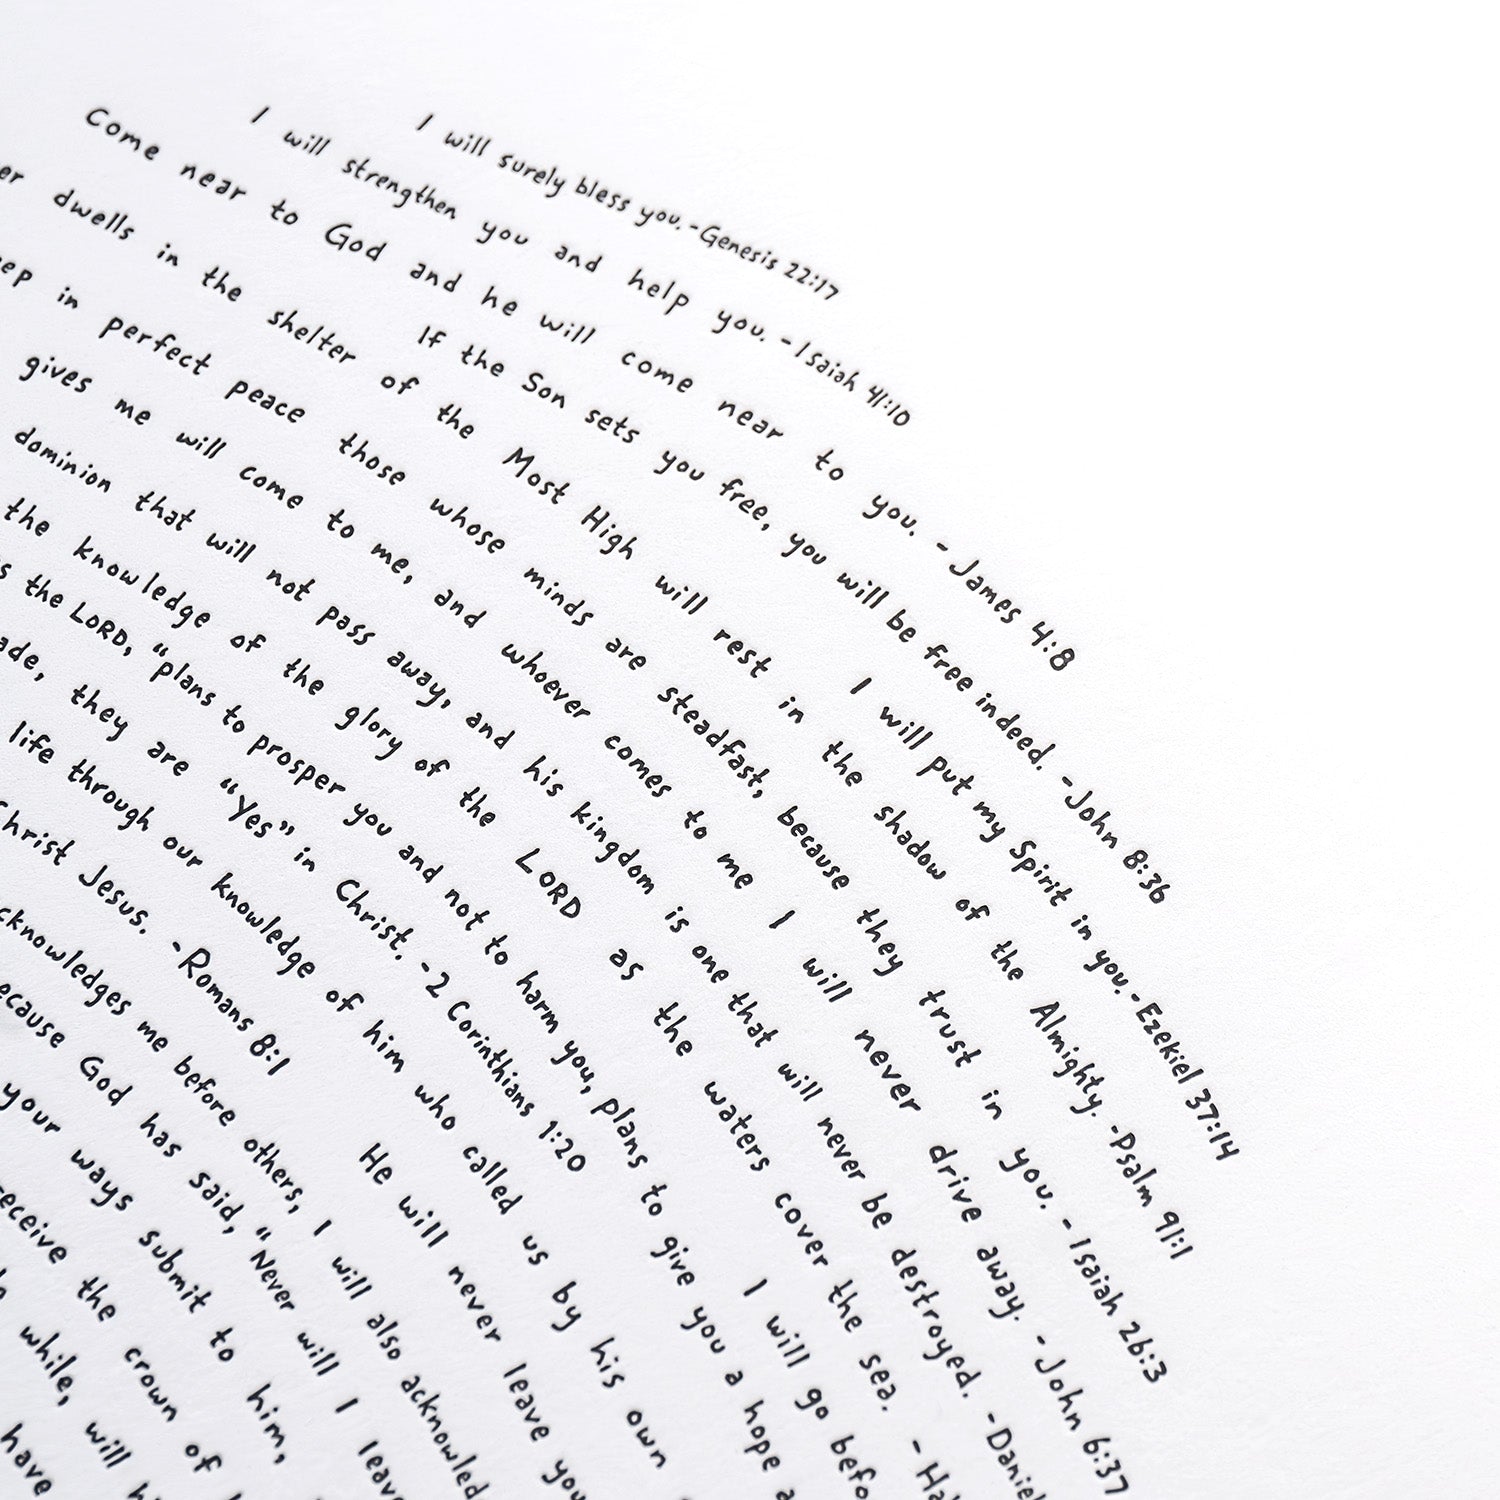 I will surely bless you. -Genesis 22:17
I will strengthen you and help you. -Isaiah 41:10
Come near to God and he will come near to you. - James 4:8
If the Son sets you free, you will be free indeed. -John 8:36
dwells in the shelter of the Most High will rest in the shadow of the Almighty. -Psalm 91:1
I will put my Spirit in you. -Ezekiel 37:14
in perfect peace those whose minds are steadfast, because they trust in you. - Isaiah 26:3
gives me will come to me, and whoever comes to me I will never drive away. - John 6:37
dominion that will not pass away, and his kingdom is one that will never be destroyed. -Daniel
the knowledge of the glory of the LORD as the waters cover the sea. -
the LORD, "plans to prosper you and not to harm you, plans to give you a hope
I will go
they are "Yes" in Christ. -2 Corinthians 1:20
life through our knowledge of him who called us by his own
Christ Jesus. -Romans 8:1
He will never leave you
me before others, I will also
God has said, "Never will I
your ways submit to him,
the crown of
while, will
have